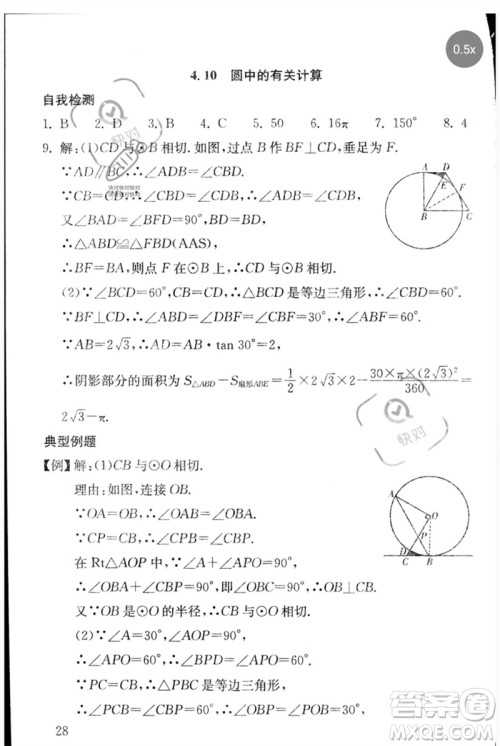 0.5x
4.10 圆中的有关计算
自我检测
1. B 2. D 3. B 4. C 5. 6. 16π 7. 150° 8. 4
9. 解：(1)CD与⊙B相切.如图，过点B作BF⊥CD，垂足为F.
∵AD∥BC，∴∠ADB=∠CBD.
∵CB=CD，∴∠CBD=∠CDB.
∴∠ADB=∠CDB.
又∵BD=BD，∠BAD=∠BFD=90°，
∴△ABD≌△FBD(AAS).
∴BF=BA，则点F在⊙B上.∴CD与⊙B相切.
(2)∵∠BCD=60°，CB=CD，∴△BCD是等边三角形.
∴∠CBD=60°.
∵BF⊥CD，∴∠ABD=∠DBF=∠CBF=30°.
∴∠ABF=60°.
∵AB=2√3，∴AD=AB·tan 30°=2.
∴阴影部分的面积为S△ABD−S扇形ABE=1/2×2√3×2−30×π×(2√3)²/360=
2√3−π.
典型例题
【例】解：(1)CB与⊙O相切.
理由：如图，连接OB.
∵OA=OB，∴∠OAB=∠OBA.
∵CP=CB，∴∠CPB=∠CBP.
在Rt△AOP中，∵∠A+∠APO=90°，
∴∠OBA+∠CBP=90°，即∠OBC=90°.∴OB⊥CB.
又∵OB是⊙O的半径，∴CB与⊙O相切.
(2)∵∠A=30°，∠AOP=90°，
∴∠APO=60°.∴∠BPD=∠APO=60°.
∵PC=CB，∴△PBC是等边三角形.
∴∠PCB=∠CBP=60°.
28